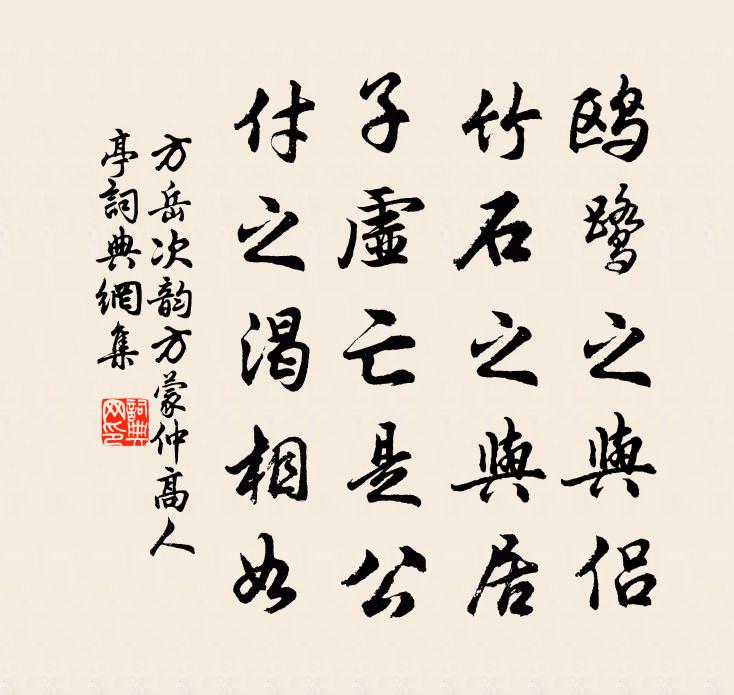 鸥鹭之與侣
竹石之與居
子虛亡是公
付之渴相如
方岳次韵方蒙仲高人
亭詞典網集
詞典網印